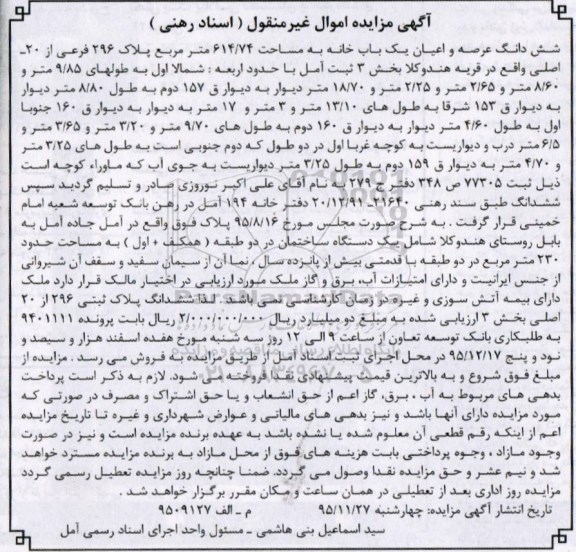 آگهی مزایده اموال غیرمنقول ( اسناد رهنی )
شش دانگ عرصه و اعیان یک باب خانه به مساحت ۶۱۴/۷۴ متر مربع پلاک ۲۹۶ فرعی از ۲۰ـ
اصلی واقع در قریه هندوکلا بخش ۳ ثبت آمل با حدود اربعه : شمالا اول به طولهای ۹/۸۵ متر و
۸/۶۰ متر و ۲/۶۵ متر و ۲/۲۵ متر و ۱۸/۷۰ متر دیوار به دیوار ق ۱۵۷ دوم به طول ۸/۸۰ متر دیوار
به دیوار ق ۱۵۳ شرقا به طول های ۱۳/۱۰ متر و ۳ متر و ۱۷ متر به دیوار به دیوار ق ۱۶۰ جنوبا
اول به طول ۴/۶۰ متر دیوار به دیوار ق ۱۶۰ دوم به طول های ۹/۷۰ متر و ۳/۲۰ متر و ۳/۶۵ متر و
۶/۵ متر درب و دیواریست به کوچه غربا اول در دو طول که دوم جنوبی است به طول های ۳/۲۵ متر
و ۴/۷۰ متر به دیوار ق ۱۵۹ دوم به طول ۳/۲۵ متر دیواریست به جوی آب که ماوراء کوچه است
ذیل ثبت ۷۷۳۰۵ ص ۳۴۸ دفتر ج ۲۷۹ به نام آقای علی اکبر نوروزی صادر و تسلیم گردید سپس
ششدانگ طبق سند رهنی ۲۱۶۴۰ـ ۲۰/۱۲/۹۱ دفتر خانه ۱۹۴ آمل در رهن بانک توسعه شعبه امام
خمینی قرار گرفت . به شرح صورت مجلس مورخ ۹۵/۸/۱۶ پلاک فوق واقع در آمل جاده آمل به
بابل روستای هندوکلا شامل یک دستگاه ساختمان در دو طبقه ( همکف + اول ) به مساحت حدود
۲۳۰ متر مربع در دو طبقه با قدمتی بیش از پانزده سال ، نما آن از سیمان سفید و سقف آن شیروانی
از جنس ایرانیت و دارای امتیازات آب، برق و گاز ملک مورد ارزیابی در اختیار مالک قرار دارد ملک
دارای بیمه آتش سوزی و غیره در زمان کارشناسی نمی باشد . لذا ششدانگ پلاک ثبتی ۲۹۶ از ۲۰
اصلی بخش ۳ ارزیابی شده به مبلغ دو میلیارد ریال ۲/۰۰۰/۰۰۰/۰۰۰ ریال بابت پرونده ۹۴۰۱۱۱۱
به طلبکاری بانک توسعه تعاون از ساعت ۹ الی ۱۲ روز سه شنبه مورخ هفده اسفند هزار و سیصد و
نود و پنج ۹۵/۱۲/۱۷ در محل اجرای ثبت اسناد آمل از طریق مزایده به فروش می رسد . مزایده از
مبلغ فوق شروع و به بالاترین قیمت پیشنهادی نقدا فروخته می شود. لازم به ذکر است پرداخت
بدهی های مربوط به آب ، برق، گاز اعم از حق انشعاب و یا حق اشتراک و مصرف در صورتی که
مورد مزایده دارای آنها باشد و نیز بدهی های مالیاتی و عوارض شهرداری و غیره تا تاریخ مزایده
اعم از اینکه رقم قطعی آن معلوم شده یا نشده باشد به عهده برنده مزایده است و نیز در صورت
وجود مازاد ، وجوه پرداختی بابت هزینه های فوق از محل مازاد به برنده مزایده مسترد خواهد
شد و نیم عشر و حق مزایده نقدا وصول می گردد. ضمنا چنانچه روز مزایده تعطیل رسمی گردد
مزایده روز اداری بعد از تعطیلی در همان ساعت و مکان مقرر برگزار خواهد شد .
تاریخ انتشار آگهی مزایده: چهارشنبه ۹۵/۱۱/۲۷ م ـ الف ۹۵۰۹۱۲۷
سید اسماعیل بنی هاشمی ـ مسئول واحد اجرای اسناد رسمی آمل